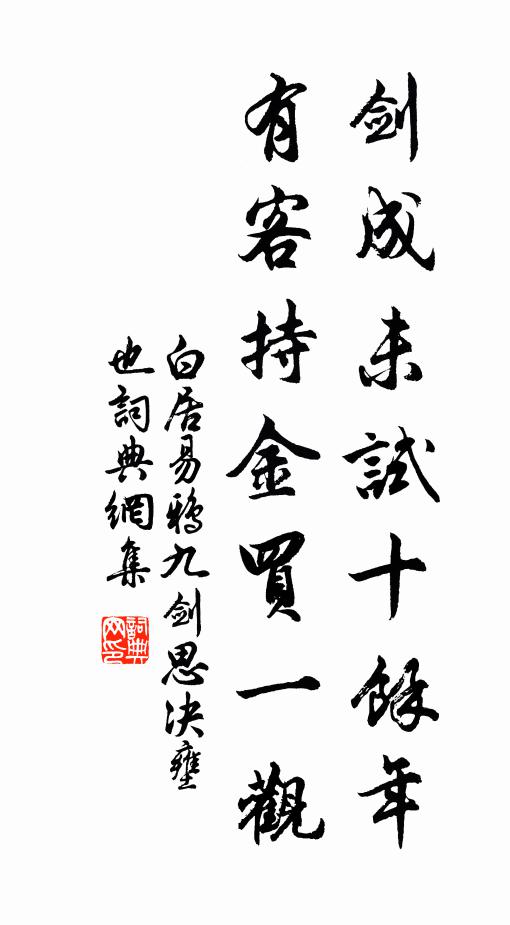 劍成未試十餘年
有客持金買一觀
白居易鴉九劍思決壅
也詞典網集
詞典网印